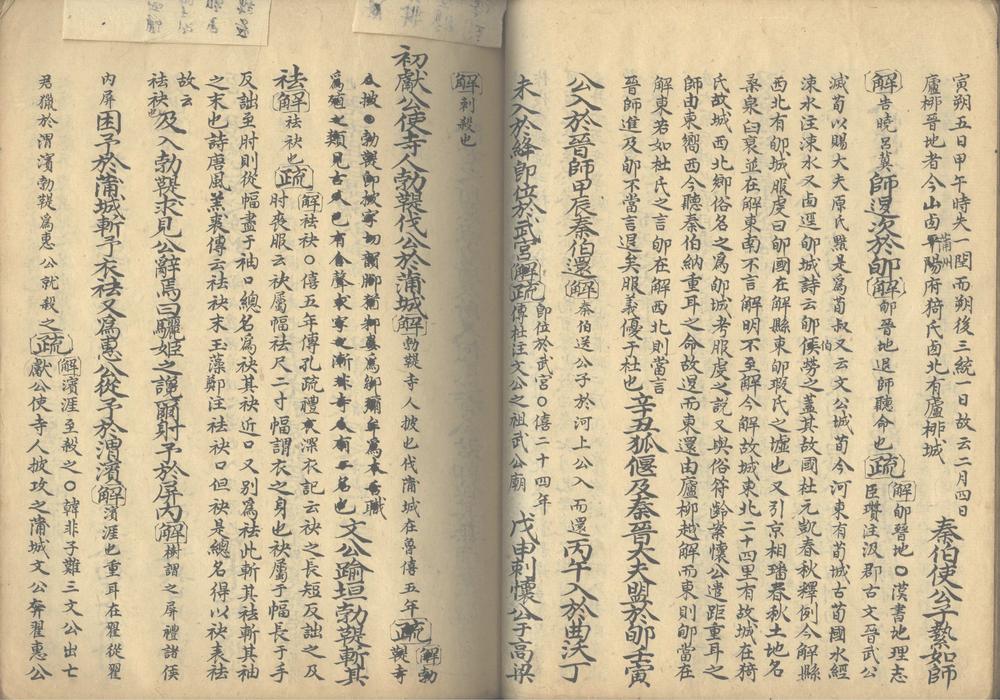 寅朔五日甲午時失一閏而朔後三統一日故云二月四日
廬桺晉地者今山西蒲州平陽府猗氏西北有廬桺城
秦伯使公子縶如師
解告曉呂冀師退次於郇解郇晉地退師聽命也疏解郇晉地○漢書地理志
臣瓚注汲郡古文晉武公
滅荀以賜大夫原氏黯是為荀叔又云文公城荀今河東有荀城古荀國水經
涑水注涑水又西逕郇城詩云郇伯勞之蓋其故國杜元凱春秋釋例今解縣
西北有郇城服虔曰郇國在解縣東郇瑕氏之墟也又引京相璠春秋土地名
桑泉臼衰並在解東南不言解明不至解今解故城東北二十四里有故城在猗
氏故城西北鄉俗名之為郇城考服虔之說又與俗符齡案懷公遣距重耳之
師由東嚮西今聽秦伯納重耳之命故退而東還由廬桺越解而東則郇當在
解東若如杜氏之言郇在解西北則當言
晉師進及郇不當言退矣服義優于杜也辛丑狐偃及秦晉大夫盟於郇壬寅
公入於晉師甲辰秦伯還解秦伯送公子於河上公入而還丙午入於曲沃丁
未入於絳即位於武宮解疏即位於武宮○僖二十四年
傳杜注文公之祖武公廟
戊申刺懷公于高梁
解刺殺也
初獻公使寺人勃鞮伐公於蒲城解勃鞮寺人披也伐蒲城在魯僖五年疏解勃
鞮寺
人披○勃鞮即披字切韻脚猶邾婁為鄒彌牟為木
為殖之類見古人已有合聲求字之漸非寺人有二名也
文公踰垣勃鞮斬其
祛解祛袂也疏解祛袂○僖五年傳孔疏禮深衣記云袂之長短反詘之及
肘喪服云袂屬幅祛尺二寸幅謂衣之身也袂屬于幅長于手
反詘至肘則從幅盡于袖口總名為袂其袂近口又別為祛此斬其祛斬其袖
之末也詩唐風羔裘傳云祛袂末玉藻鄭注祛袂口但袂是總名得以袂表祛
故云
祛袂也及入勃鞮求見公辭焉曰驪姬之讒爾射予於屏內解樹謂之屏禮諸侯
內屏困予於蒲城斬予衣祛又為惠公從予於渭濱解濱涯也重耳在翟從翟
君獵於渭濱勃鞮為惠公就殺之疏解濱涯至殺之○韓非子難三文公出亡
獻公使寺人披攻之蒲城文公奔翟惠公